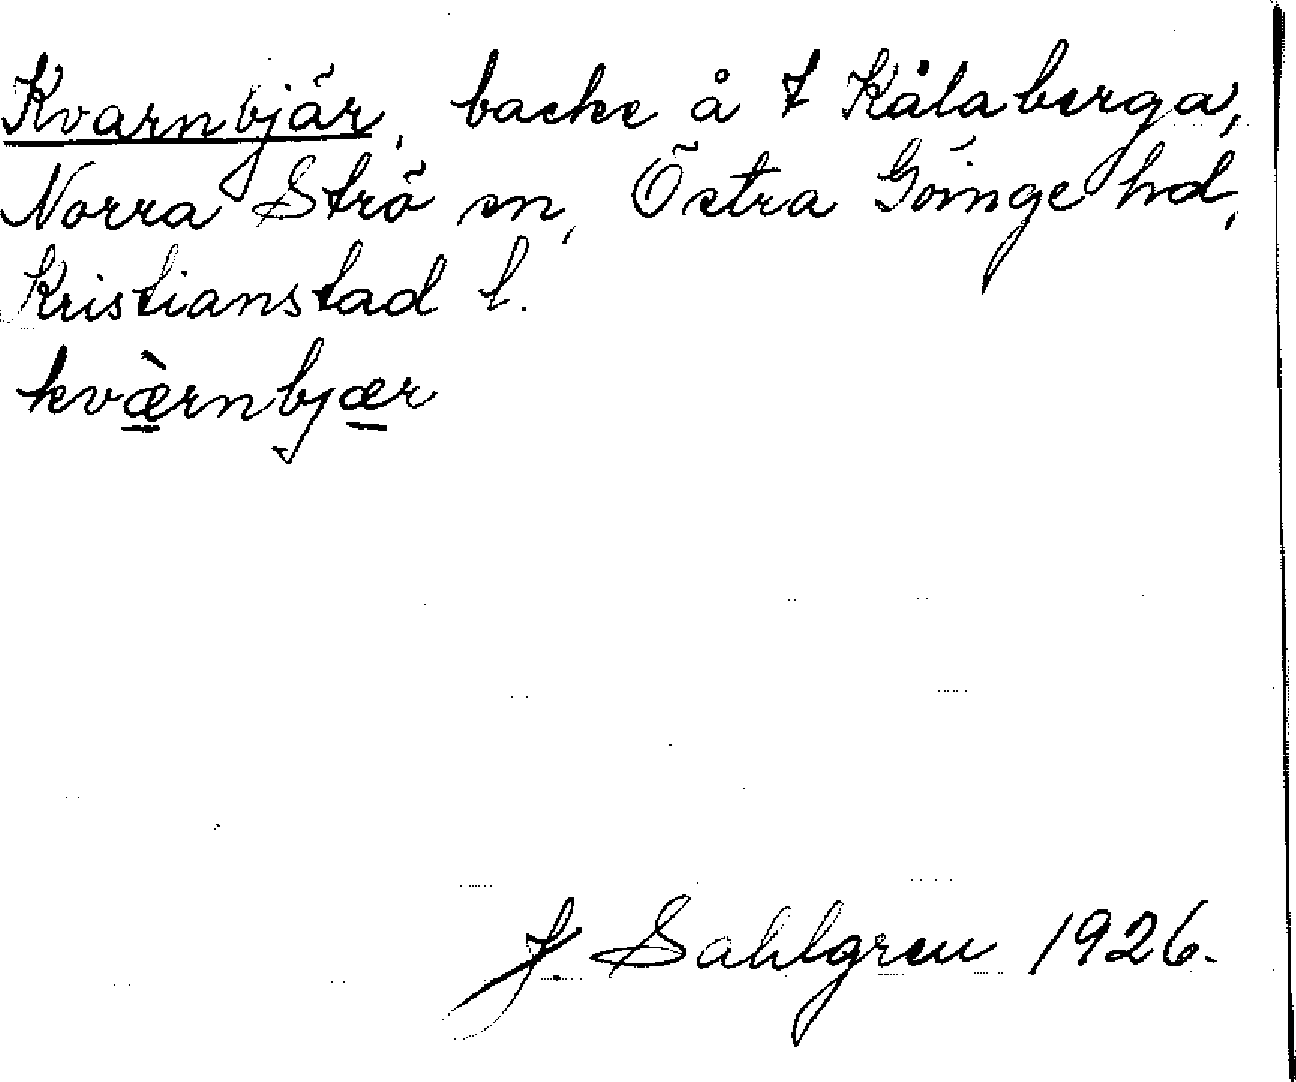 Kvarnbjär, backe å t Kålaberga,
Norra Strö sn, Östra Göinge hd,
Kristianstad l.
kvæ̀rnbjær
J. Sahlgren 1926.